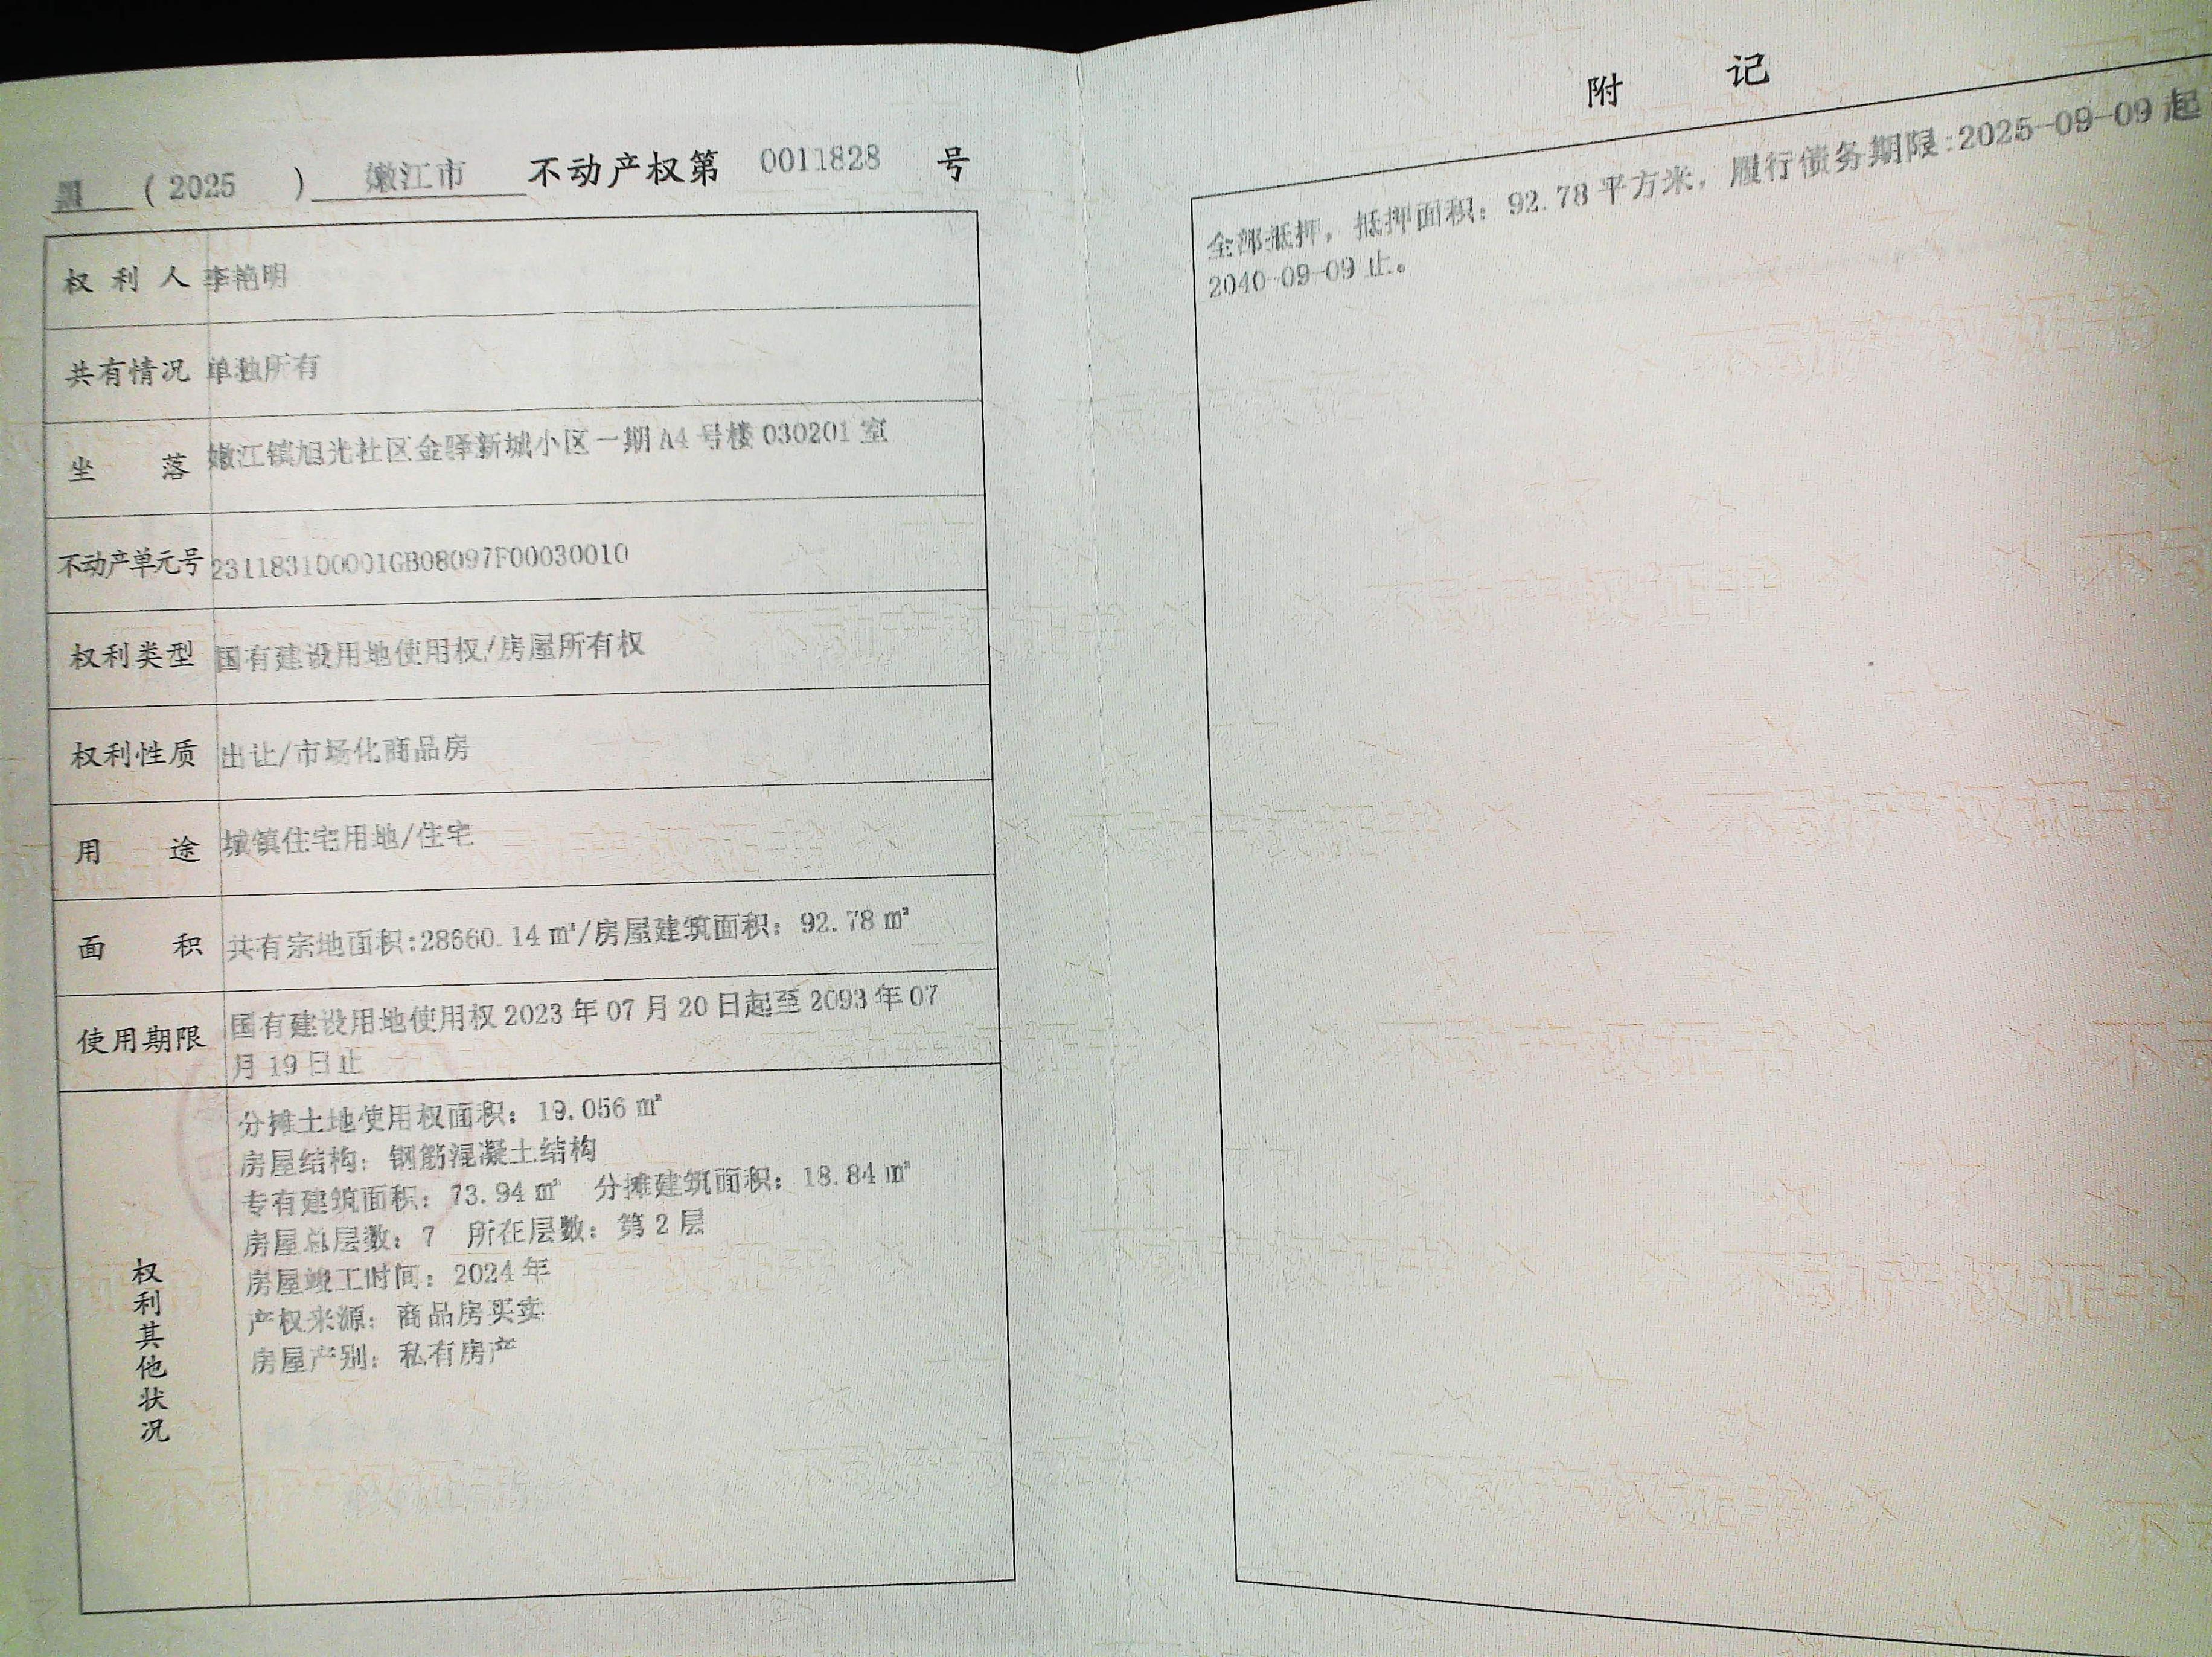 黑 (2025) 嫩江市 不动产权第 0011828 号
权利人 李艳明
共有情况 单独所有
坐落 嫩江镇旭光社区金驿新城小区一期A4号楼030201室
不动产单元号 231183100001GB08097F00030010
权利类型 国有建设用地使用权/房屋所有权
权利性质 出让/市场化商品房
用途 城镇住宅用地/住宅
面积 共有宗地面积:28660.14㎡/房屋建筑面积：92.78㎡
使用期限 国有建设用地使用权2023年07月20日起至2093年07
月19日止
权利其他状况
分摊土地使用权面积：19.056㎡
房屋结构：钢筋混凝土结构
专有建筑面积：73.94㎡ 分摊建筑面积：18.84㎡
房屋总层数：7 所在层数：第2层
房屋竣工时间：2024年
产权来源：商品房买卖
房屋产别：私有房产
附记
全部抵押，抵押面积：92.78平方米，履行债务期限:2025-09-09起
2040-09-09止。